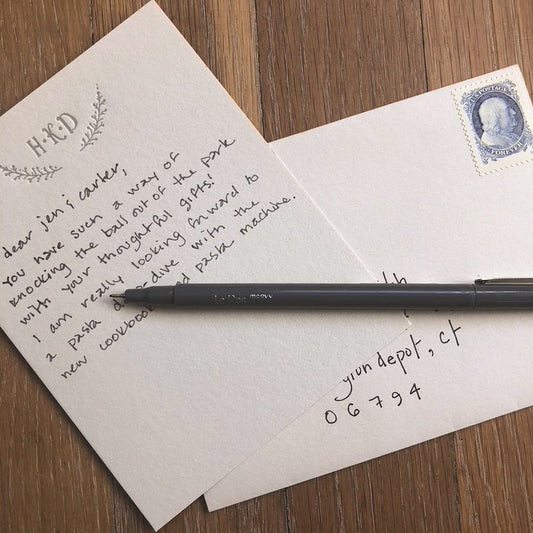 H·K·D
dear jen & carter,
you have such a way of
knocking the ball out of the park
with your thoughtful gifts!
I am really looking forward to
a pasta dive with the
new cookbook pasta machine.
Le Pen
U.S. POSTAGE
FOREVER
depot, ct
06794